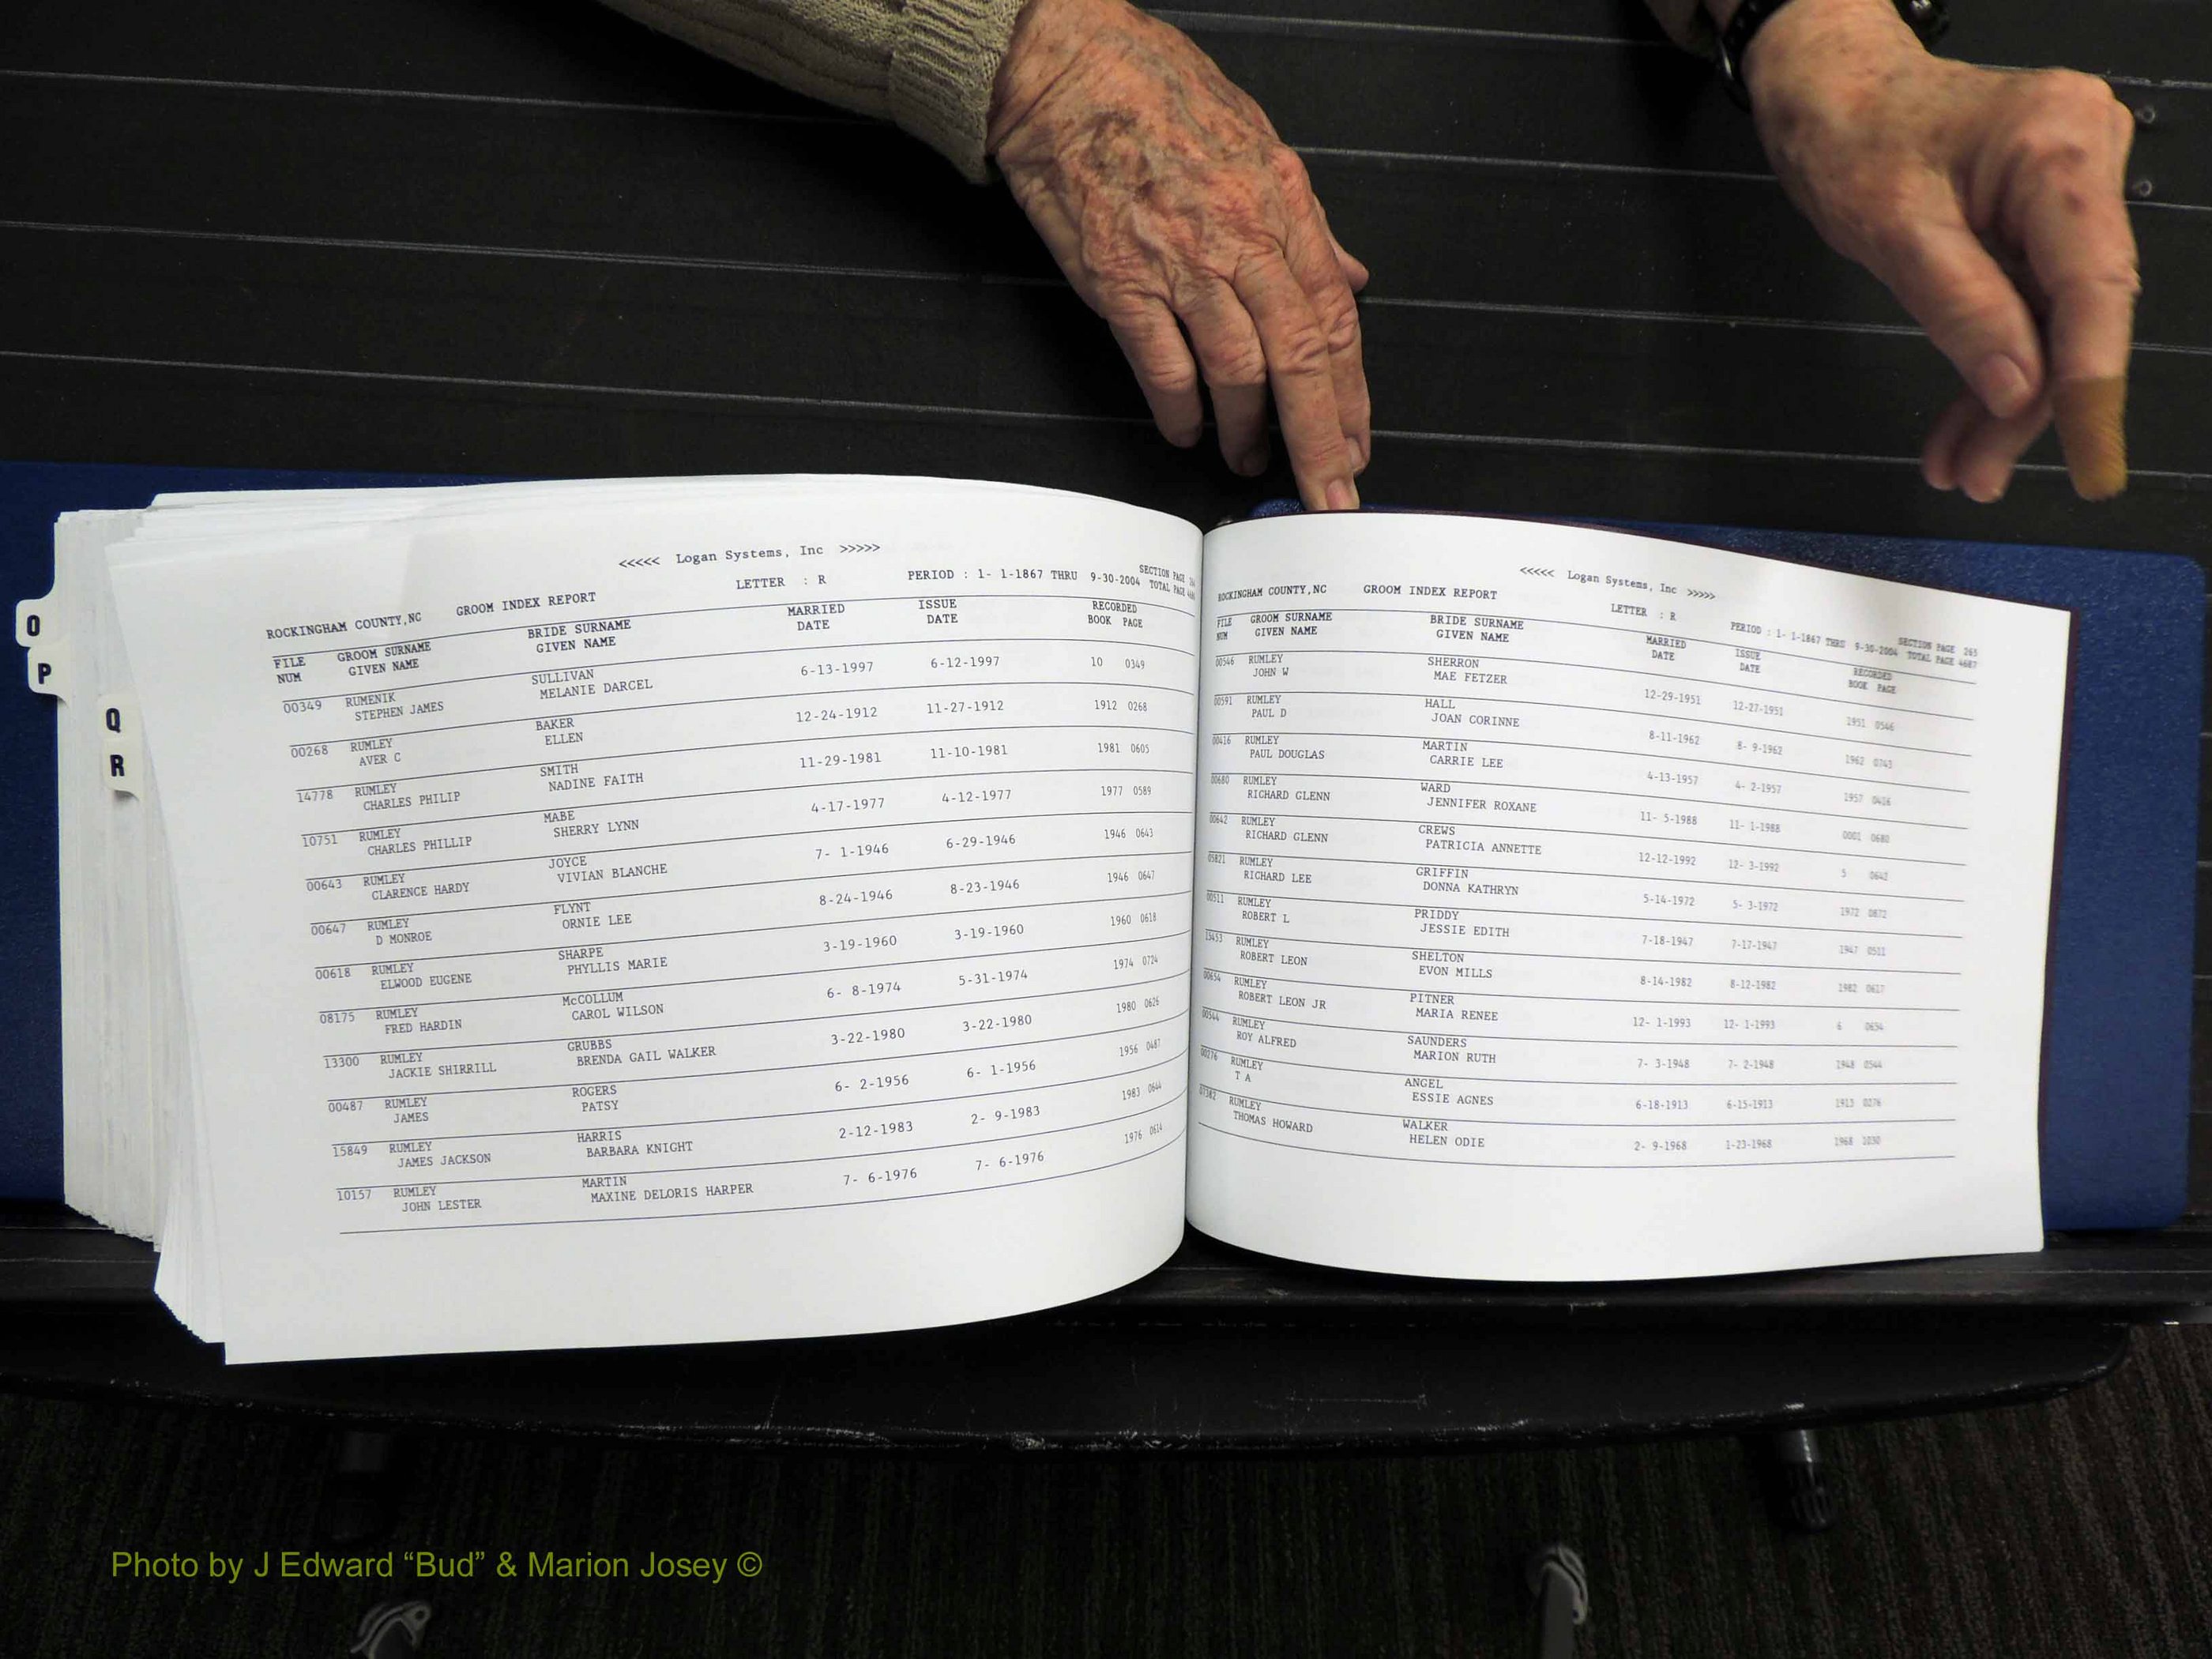 O
P
Q
R
<<<<< Logan Systems, Inc >>>>>
ROCKINGHAM COUNTY,NC GROOM INDEX REPORT LETTER : R PERIOD : 1- 1-1867 THRU 9-30-2004 SECTION PAGE
TOTAL PAGE
FILE GROOM SURNAME BRIDE SURNAME MARRIED ISSUE RECORDED
NUM GIVEN NAME GIVEN NAME DATE DATE BOOK PAGE
00349 RUMENIK SULLIVAN 6-13-1997 6-12-1997 10 0349
STEPHEN JAMES MELANIE DARCEL
00268 RUMLEY BAKER 12-24-1912 11-27-1912 1912 0268
AVER C ELLEN
14778 RUMLEY SMITH 11-29-1981 11-10-1981 1981 0605
CHARLES PHILIP NADINE FAITH
10751 RUMLEY MABE 4-17-1977 4-12-1977 1977 0589
CHARLES PHILLIP SHERRY LYNN
00643 RUMLEY JOYCE 7- 1-1946 6-29-1946 1946 0643
CLARENCE HARDY VIVIAN BLANCHE
00647 RUMLEY FLYNT 8-24-1946 8-23-1946 1946 0647
D MONROE ORNIE LEE
00618 RUMLEY SHARPE 3-19-1960 3-19-1960 1960 0618
ELWOOD EUGENE PHYLLIS MARIE
08175 RUMLEY McCOLLUM 6- 8-1974 5-31-1974 1974 0724
FRED HARDIN CAROL WILSON
13300 RUMLEY GRUBBS 3-22-1980 3-22-1980 1980 0626
JACKIE SHIRRILL BRENDA GAIL WALKER
00487 RUMLEY ROGERS 6- 2-1956 6- 1-1956 1956 0487
JAMES PATSY
15849 RUMLEY HARRIS 2-12-1983 2- 9-1983 1983 0644
JAMES JACKSON BARBARA KNIGHT
10157 RUMLEY MARTIN 7- 6-1976 7- 6-1976 1976 0614
JOHN LESTER MAXINE DELORIS HARPER
<<<<< Logan Systems, Inc >>>>>
ROCKINGHAM COUNTY,NC GROOM INDEX REPORT LETTER : R PERIOD : 1- 1-1867 THRU 9-30-2004 SECTION PAGE 265
TOTAL PAGE 4687
FILE GROOM SURNAME BRIDE SURNAME MARRIED ISSUE RECORDED
NUM GIVEN NAME GIVEN NAME DATE DATE BOOK PAGE
00546 RUMLEY SHERRON 12-29-1951 12-27-1951 1951 0546
JOHN W MAE FETZER
00591 RUMLEY HALL 8-11-1962 8- 9-1962 1962 0743
PAUL D JOAN CORINNE
00416 RUMLEY MARTIN 4-13-1957 4- 2-1957 1957 0416
PAUL DOUGLAS CARRIE LEE
00680 RUMLEY WARD 11- 5-1988 11- 1-1988 0001 0680
RICHARD GLENN JENNIFER ROXANE
00642 RUMLEY CREWS 12-12-1992 12- 3-1992 5 0642
RICHARD GLENN PATRICIA ANNETTE
05821 RUMLEY GRIFFIN 5-14-1972 5- 3-1972 1972 0872
RICHARD LEE DONNA KATHRYN
00511 RUMLEY PRIDDY 7-18-1947 7-17-1947 1947 0511
ROBERT L JESSIE EDITH
15453 RUMLEY SHELTON 8-14-1982 8-12-1982 1982 0617
ROBERT LEON EVON MILLS
00654 RUMLEY PITNER 12- 1-1993 12- 1-1993 6 0654
ROBERT LEON JR MARIA RENEE
00544 RUMLEY SAUNDERS 7- 3-1948 7- 2-1948 1948 0544
ROY ALFRED MARION RUTH
00276 RUMLEY ANGEL 6-18-1913 6-15-1913 1913 0276
T A ESSIE AGNES
07382 RUMLEY WALKER 2- 9-1968 1-23-1968 1968 1030
THOMAS HOWARD HELEN ODIE
Photo by J Edward “Bud” & Marion Josey ©